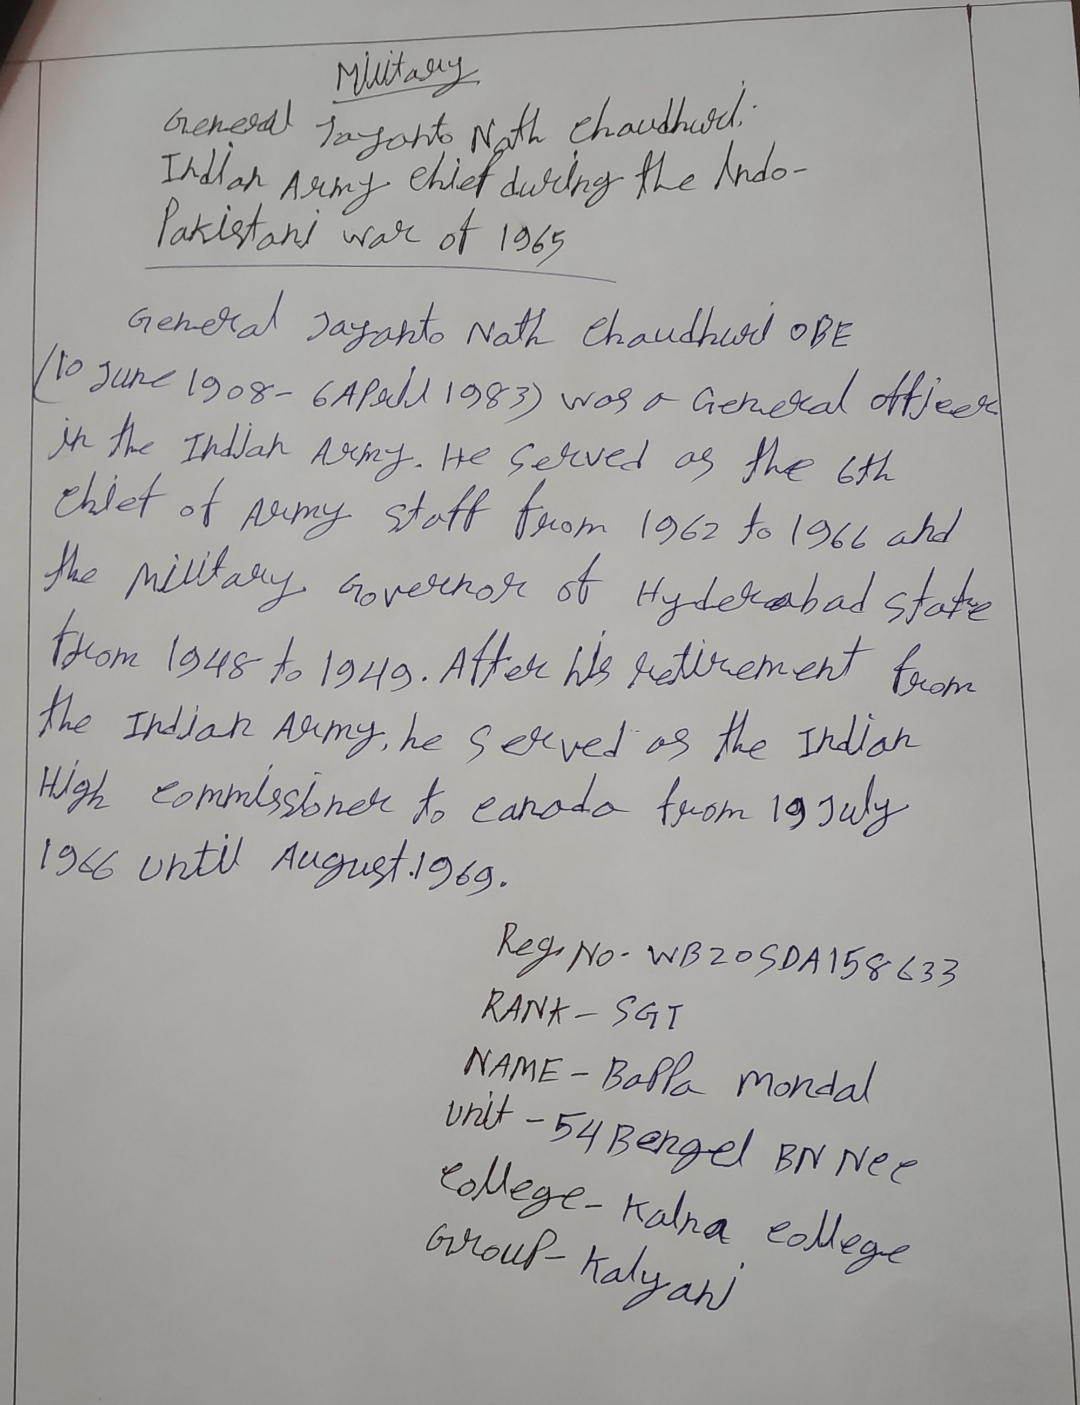 Military
General Jayanto Nath Chaudhuri:
Indian Army Chief during the Indo-
Pakistani war of 1965
General Jayanto Nath Chaudhuri OBE
(10 June 1908- 6 April 1983) was a General officer
in the Indian Army. He served as the 6th
Chief of Army Staff from 1962 to 1966 and
the Military Governor of Hyderabad state
from 1948 to 1949. After his retirement from
the Indian Army, he served as the Indian
High commissioner to canada from 19 July
1966 until August.1969.
Reg. No- WB20SDA158633
RANK- SGT
NAME- Bappa Mondal
Unit - 54 Bengel BN Ncc
College- Kalna college
Group- Kalyani